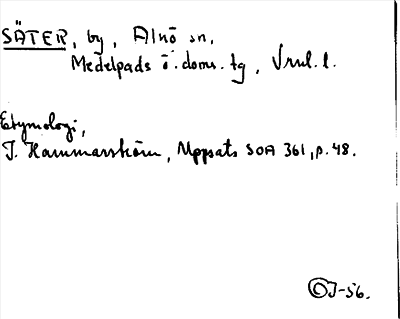 SÄTER, by, Alnö sn,
Medelpads ö. doms. tg, Vnl. l.
Etymologi,
J. Hammarström, Uppsats SOA 361, p. 48.
OJ-56.